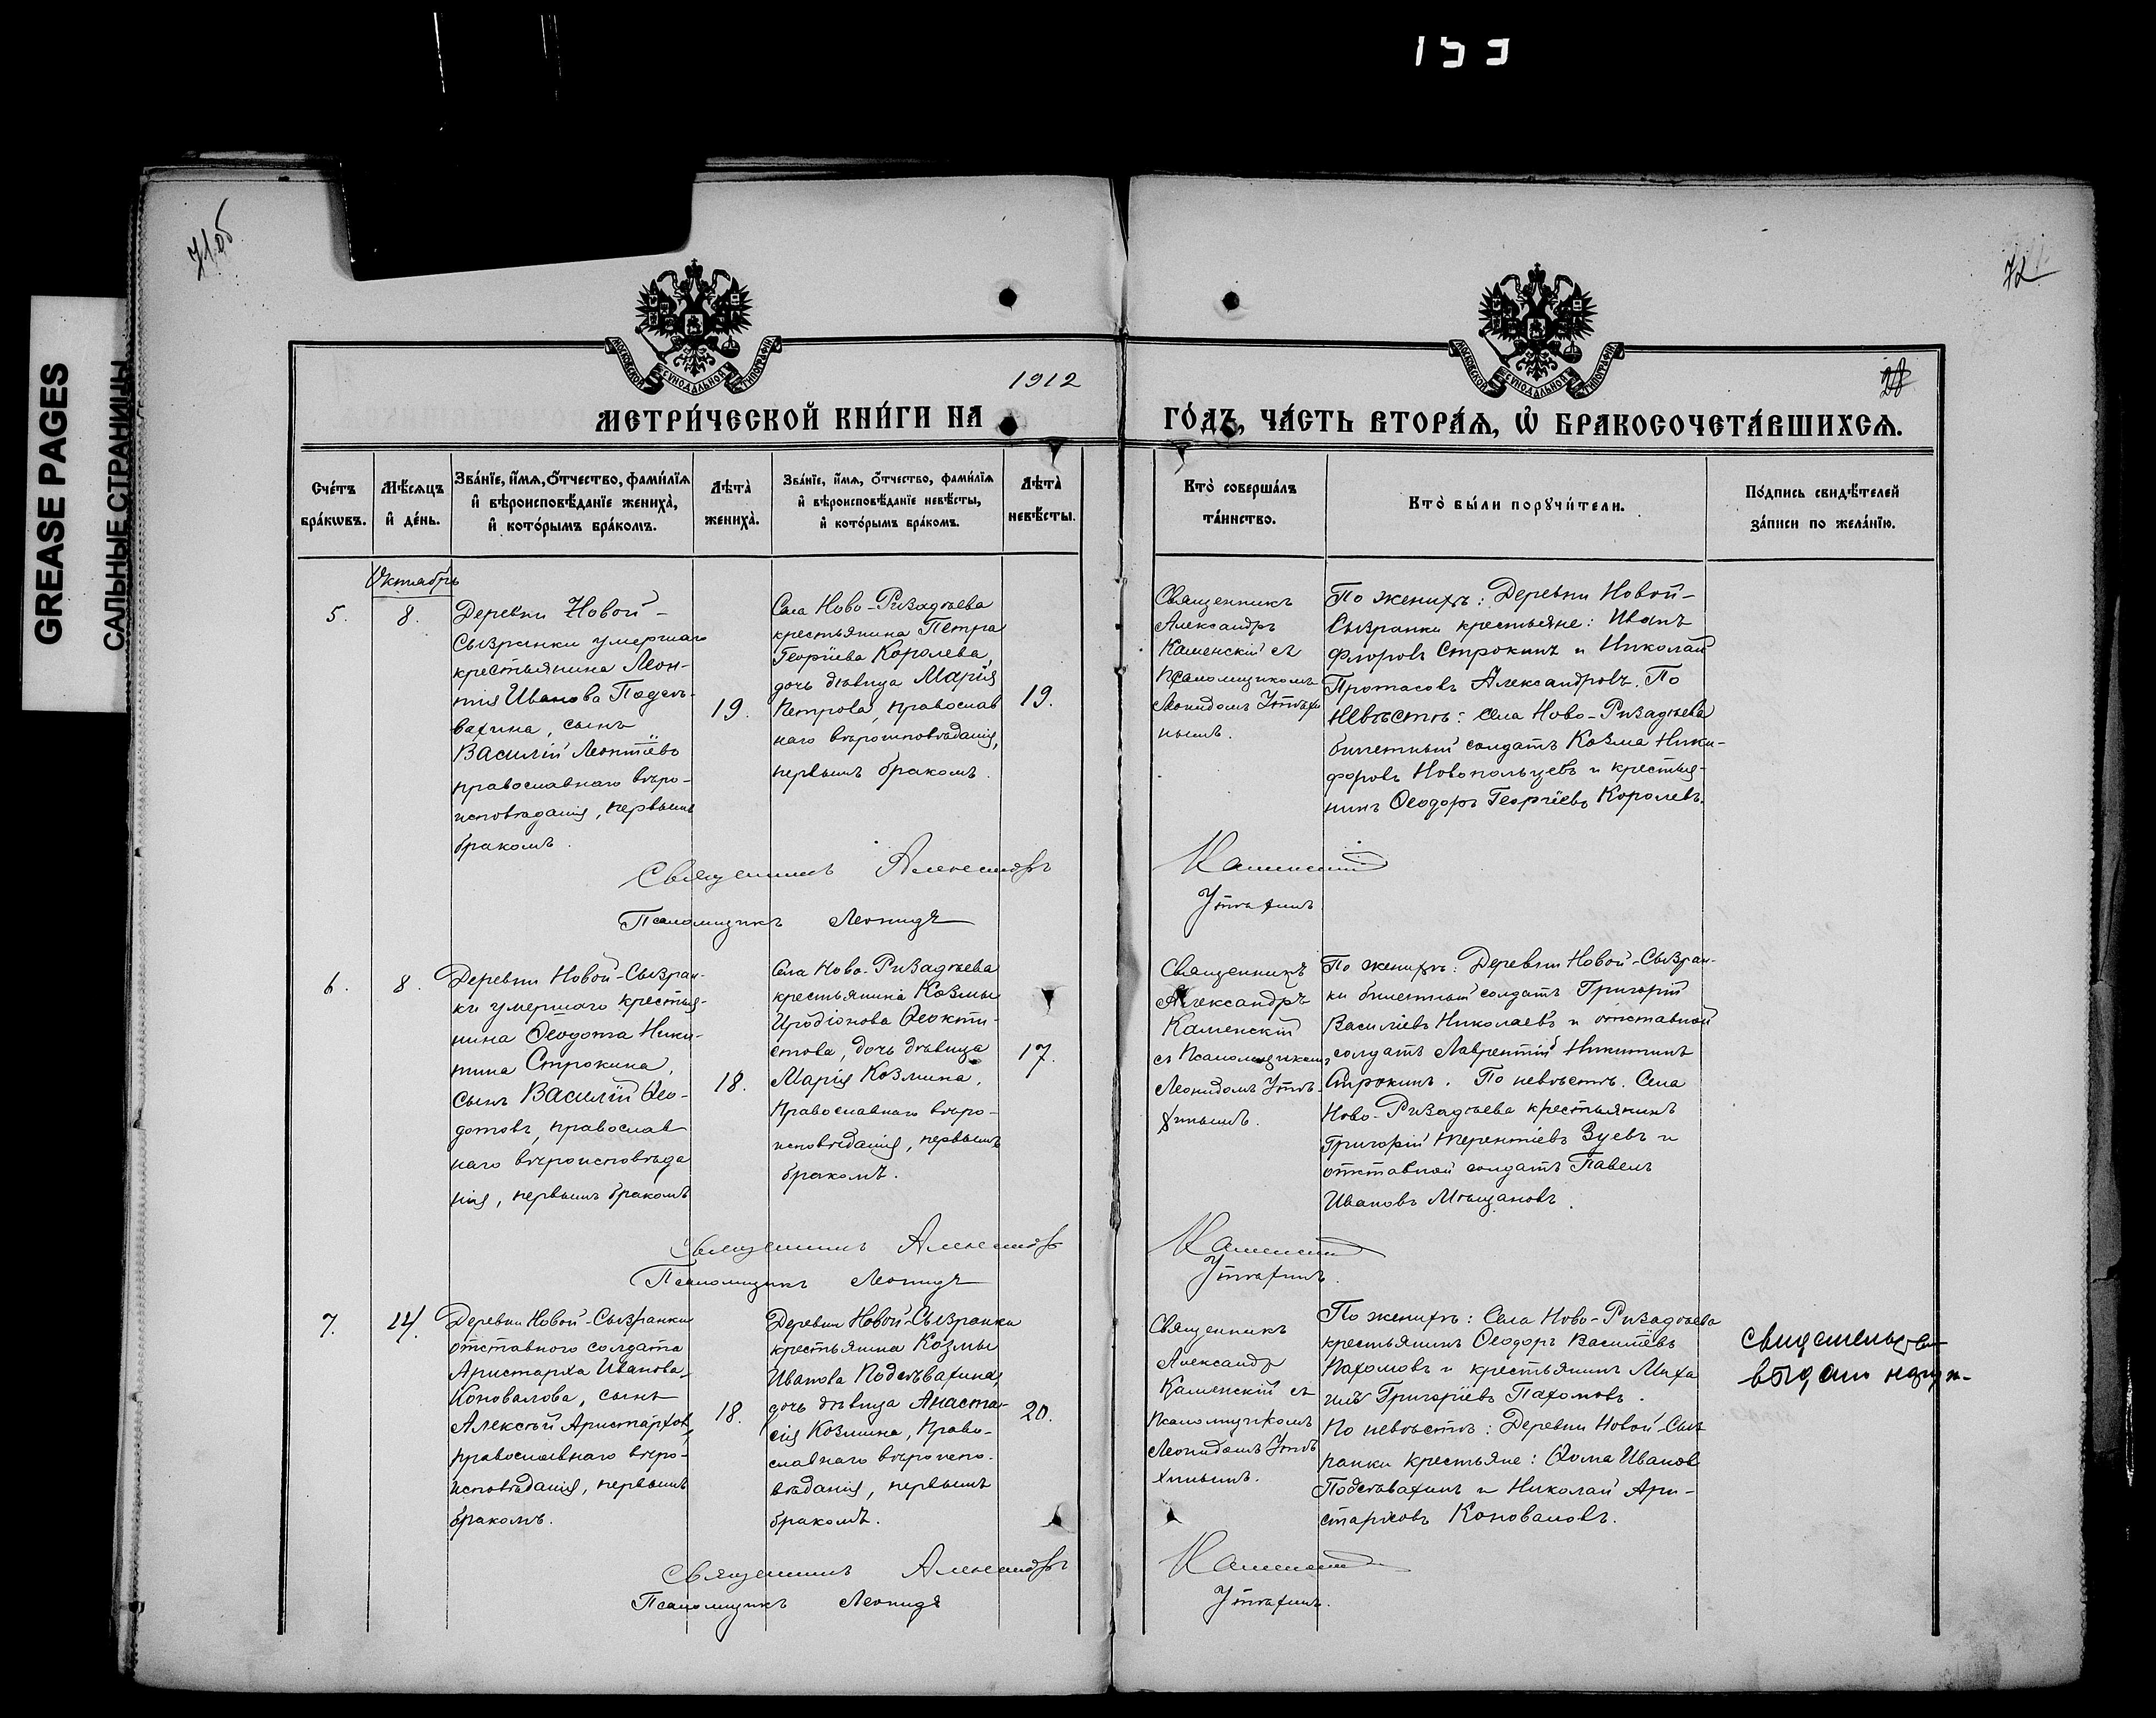 153
GREASE PAGES
САЛЬНЫЕ СТРАНИЦЫ
71об
72
1912
МЕТРИ́ЧЕСКОЙ КНИ́ГИ НА
ГО́ДЪ, ЧА́СТЬ ВТОРА́Ѧ, Ѡ҆ БРАКОСОЧЕТА́ВШИХСѦ.
Сче́тъ
бра́кѡвъ.
Мѣ́сяцъ
и҆ де́нь.
Зва́нїе, и҆́мѧ, ѻ҆́тчество, фами́лїѧ
и҆ вѣроисповѣ́данїе жениха̀,
и҆ кото́рымъ бра́комъ.
Лѣта̀
жениха̀.
Зва́нїе, и҆́мѧ, ѻ҆́тчество, фами́лїѧ
и҆ вѣроисповѣ́данїе невѣ́сты,
и҆ кото́рымъ бра́комъ.
Лѣта̀
невѣ́сты.
Кто̀ соверша́лъ
та́инство.
Кто̀ бы́ли порꙋчи́тели.
По́дпись свидѣ́телей
за́писи по жела́нїю.
Октябрь
5.
8.
Деревни Новой-
Сызранки умершаго
крестьянина Леон-
тія Иванова Подсѣ-
вахина, сынъ
Василій Леонтіевъ
православнаго вѣро-
исповѣданія, первымъ
бракомъ.
19.
Села Ново-Ризадѣева
крестьянина Петра
Георгіева Королева,
дочь дѣвица Марія
Петрова, православ
наго вѣроисповѣданія,
первымъ бракомъ.
19.
Священникъ
Александръ
Каменскій съ
Псаломщикомъ
Леонидомъ Утѣхи
нымъ.
По женихѣ: Деревни Новой-
Сызранки крестьяне: Иванъ
Флоровъ Строкинъ и Николай
Протасовъ Александровъ. По
невѣстѣ: села Ново-Ризадѣева
билетный солдатъ Козма Ники-
форовъ Новопольцевъ и крестья-
нинъ Ѳеодоръ Георгіевъ Королевъ.
Священникъ Александръ Каменскій
Псаломщикъ Леонидъ Утѣхинъ.
6.
8.
Деревни Новой-Сызран-
ки умершаго крестья-
нина Ѳеодота Ники-
тина Строкина,
сынъ Василій Ѳео-
дотовъ, православ
наго вѣроисповѣда
нія, первымъ бракомъ
18.
Села Ново-Ризадѣева
крестьянина Козмы
Иродіонова Ѳеокти-
стова, дочь дѣвица
Марія Козмина,
Православнаго вѣро-
исповѣданія, первымъ
бракомъ.
17.
Священникъ
Александръ
Каменскій
съ Псаломщикомъ
Леонидомъ Утѣ-
хинымъ.
По женихѣ: Деревни Новой-Сызран-
ки билетный солдатъ Григорій
Василіевъ Николаевъ и отставной
солдатъ Лаврентій Никитинъ
Строкинъ. По невѣстѣ. Села
Ново-Ризадѣева крестьянинъ
Григорій Терентіевъ Зуевъ и
отставной солдатъ Павелъ
Ивановъ Мѣщановъ.
Священникъ Александръ Каменскій
Псаломщикъ Леонидъ Утѣхинъ.
7.
14.
Деревни Новой-Сызранки
отставного солдата
Аристарха Иванова
Коновалова, сынъ
Алексѣй Аристархов,
православнаго вѣро-
исповѣданія, первымъ
бракомъ.
18.
Деревни Новой-Сызранки
крестьянина Козмы
Иванова Подсѣвахина,
дочь дѣвица Анаста-
сія Козмина, Право-
славнаго вѣроиспо-
вѣданія, первымъ
бракомъ.
20.
Священникъ
Александр
Каменскій съ
Псаломщикомъ
Леонидомъ Утѣ
хинымъ.
По женихѣ: Села Ново-Ризадѣева
крестьянинъ Ѳеодоръ Василіевъ
Пахомовъ и крестьянинъ Миха
илъ Григоріевъ Пахомовъ.
По невѣстѣ: Деревни Новой-Сыз
ранки крестьяне: Ѳома Иванов
Подсѣвахинъ и Николай Ари-
старховъ Коноваловъ.
выдано
Священникъ Александръ Каменскій
Псаломщикъ Леонидъ Утѣхинъ.